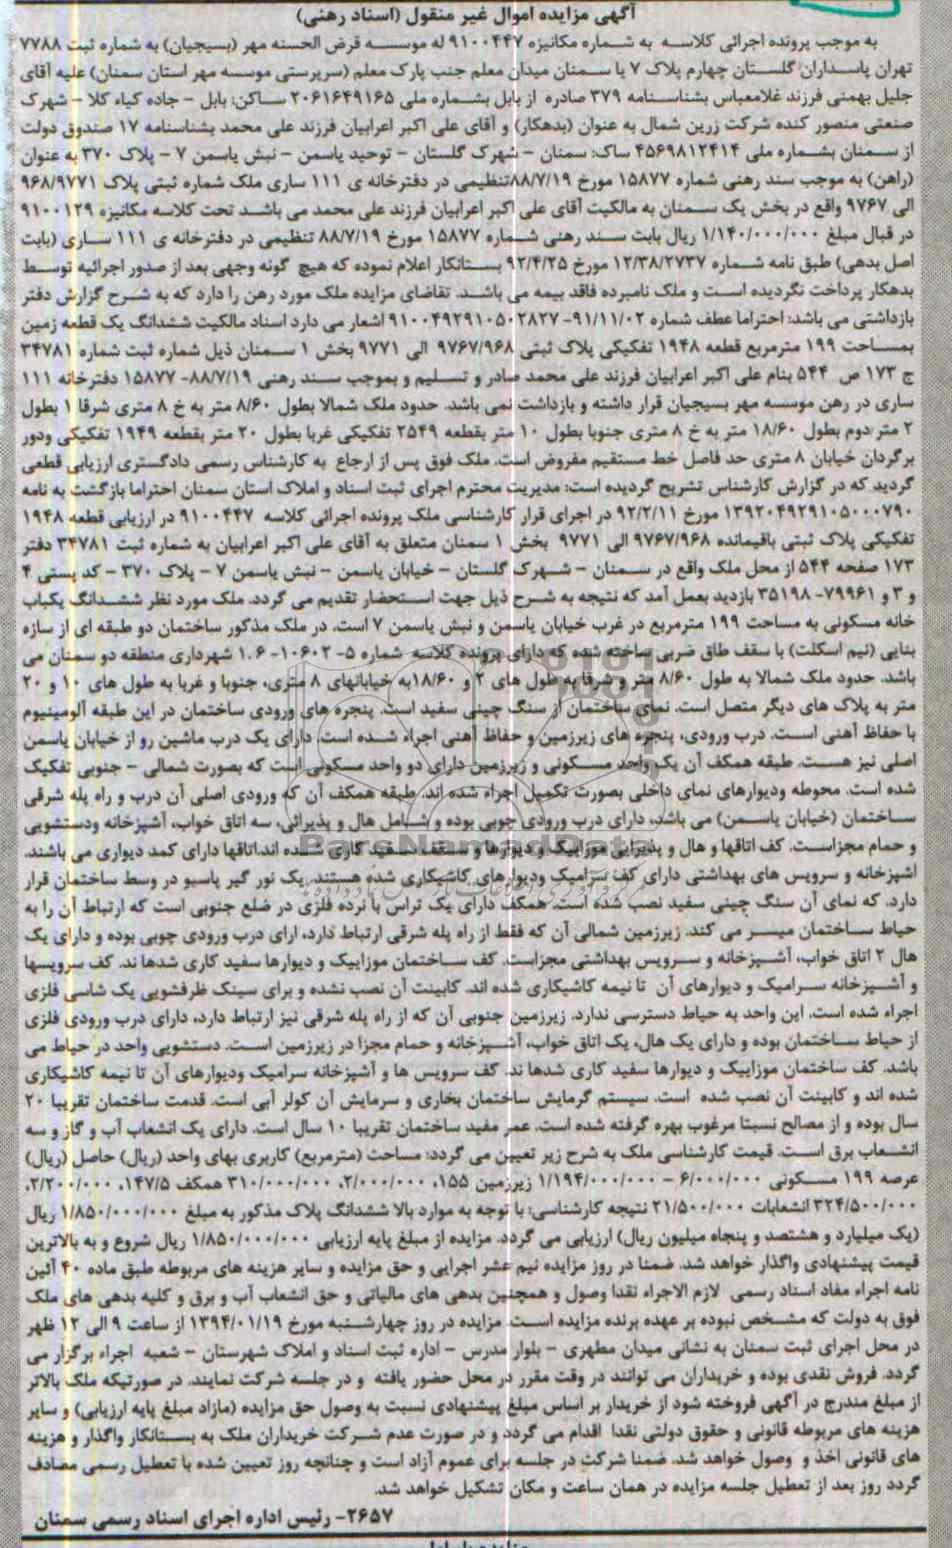 آگهی مزایده اموال غیر منقول (اسناد رهنی)
به موجب پرونده اجرائی کلاسه به شماره مکانیزه ۹۱۰۰۴۴۷ له موسسه قرض الحسنه مهر (بسیجیان) به شماره ثبت ۷۷۸۸
تهران پاسداران گلستان چهارم پلاک ۷ یا سمنان میدان معلم جنب پارک معلم (سرپرستی موسسه مهر استان سمنان) علیه آقای
جلیل بهمنی فرزند غلامعباس بشناسنامه ۳۷۹ صادره از بابل بشماره ملی ۲۰۶۱۶۴۹۱۶۵ ساکن: بابل - جاده کیاء کلا - شهرک
صنعتی منصور کنده شرکت زرین شمال به عنوان (بدهکار) و آقای علی اکبر اعرابیان فرزند علی محمد بشناسنامه ۱۷ صندوق دولت
از سمنان بشماره ملی ۴۵۶۹۸۱۲۴۱۴ ساک: سمنان - شهرک گلستان - توحید یاسمن - نبش یاسمن ۷ - پلاک ۳۷۰ به عنوان
(راهن) به موجب سند رهنی شماره ۱۵۸۷۷ مورخ ۸۸/۷/۱۹تنظیمی در دفترخانه ی ۱۱۱ ساری ملک شماره ثبتی پلاک ۹۶۸/۹۷۷۱
الی ۹۷۶۷ واقع در بخش یک سمنان به مالکیت آقای علی اکبر اعرابیان فرزند علی محمد می باشد تحت کلاسه مکانیزه ۹۱۰۰۱۲۹
در قبال مبلغ ۱/۱۴۰/۰۰۰/۰۰۰ ریال بابت سند رهنی شماره ۱۵۸۷۷ مورخ ۸۸/۷/۱۹ تنظیمی در دفترخانه ی ۱۱۱ ساری (بابت
اصل بدهی) طبق نامه شماره ۱۲/۳۸/۲۷۳۷ مورخ ۹۲/۴/۲۵ بستانکار اعلام نموده که هیچ گونه وجهی بعد از صدور اجرائیه توسط
بدهکار پرداخت نگردیده است و ملک نامبرده فاقد بیمه می باشد. تقاضای مزایده ملک مورد رهن را دارد که به شرح گزارش دفتر
بازداشتی می باشد: احتراما عطف شماره ۹۱/۱۱/۰۲- ۹۱۰۰۴۹۲۹۱۰۵۰۲۸۲۷ اشعار می دارد اسناد مالکیت ششدانگ یک قطعه زمین
بمساحت ۱۹۹ مترمربع قطعه ۱۹۴۸ تفکیکی پلاک ثبتی ۹۷۶۷/۹۶۸ الی ۹۷۷۱ بخش ۱ سمنان ذیل شماره ثبت شماره ۳۴۷۸۱
ج ۱۷۳ ص ۵۴۴ بنام علی اکبر اعرابیان فرزند علی محمد صادر و تسلیم و بموجب سند رهنی ۸۸/۷/۱۹- ۱۵۸۷۷ دفترخانه ۱۱۱
ساری در رهن موسسه مهر بسیجیان قرار داشته و بازداشت نمی باشد. حدود ملک شمالا بطول ۸/۶۰ متر به خ ۸ متری شرقا ۱ بطول
۲ متر دوم بطول ۱۸/۶۰ متر به خ ۸ متری جنوبا بطول ۱۰ متر بقطعه ۲۵۴۹ تفکیکی غربا بطول ۲۰ متر بقطعه ۱۹۴۹ تفکیکی ودور
برگردان خیابان ۸ متری حد فاصل خط مستقیم مفروض است. ملک فوق پس از ارجاع به کارشناس رسمی دادگستری ارزیابی قطعی
گردید که در گزارش کارشناس تشریح گردیده است: مدیریت محترم اجرای ثبت اسناد و املاک استان سمنان احتراما بازگشت به نامه
۱۳۹۲۰۴۹۲۹۱۰۵۰۰۰۷۹۰ مورخ ۹۲/۲/۱۱ در اجرای قرار کارشناسی ملک پرونده اجرائی کلاسه ۹۱۰۰۴۴۷ در ارزیابی قطعه ۱۹۴۸
تفکیکی پلاک ثبتی باقیمانده ۹۷۶۷/۹۶۸ الی ۹۷۷۱ بخش ۱ سمنان متعلق به آقای علی اکبر اعرابیان به شماره ثبت ۳۴۷۸۱ دفتر
۱۷۳ صفحه ۵۴۴ از محل ملک واقع در سمنان - شهرک گلستان - خیابان یاسمن - نبش یاسمن ۷ - پلاک ۳۷۰ - کد پستی ۴
و ۳ و ۷۹۹۶۱- ۳۵۱۹۸ بازدید بعمل آمد که نتیجه به شرح ذیل جهت استحضار تقدیم می گردد. ملک مورد نظر ششدانگ یکباب
خانه مسکونی به مساحت ۱۹۹ مترمربع در غرب خیابان یاسمن و نبش یاسمن ۷ است. در ملک مذکور ساختمان دو طبقه ای از سازه
بنایی (نیم اسکلت) با سقف طاق ضربی ساخته شده که دارای پرونده کلاسه شماره ۵- ۱۰۶۰۲- ۱.۶ شهرداری منطقه دو سمنان می
باشد. حدود ملک شمالا به طول ۸/۶۰ متر و شرقا به طول های ۲ و ۱۸/۶۰به خیابانهای ۸ متری، جنوبا و غربا به طول های ۱۰ و ۲۰
متر به پلاک های دیگر متصل است. نمای ساختمان از سنگ چینی سفید است. پنجره های ورودی ساختمان در این طبقه آلومینیوم
با حفاظ آهنی است. درب ورودی، پنجره های زیرزمین و حفاظ آهنی اجراء شده است. دارای یک درب ماشین رو از خیابان یاسمن
اصلی نیز هست. طبقه همکف آن یک واحد مسکونی و زیرزمین دارای دو واحد مسکونی است که بصورت شمالی - جنوبی تفکیک
شده است. محوطه ودیوارهای نمای داخلی بصورت تکمیل اجراء شده اند. طبقه همکف آن که ورودی اصلی آن درب و راه پله شرقی
ساختمان (خیابان یاسمن) می باشد، دارای درب ورودی چوبی بوده و شامل هال و پذیرائی، سه اتاق خواب، آشپزخانه ودستشویی
و حمام مجزاست. کف اتاقها و هال و پذیرایی موزاییک و دیوارها و سقف سفید کاری شده اند.اتاقها دارای کمد دیواری می باشند.
اشپزخانه و سرویس های بهداشتی دارای کف سرامیک ودیوارهای کاشیکاری شده هستند. یک نور گیر پاسیو در وسط ساختمان قرار
دارد. که نمای آن سنگ چینی سفید نصب شده است. همکف دارای یک تراس با نرده فلزی در ضلع جنوبی است که ارتباط آن را به
حیاط ساختمان میسر می کند. زیرزمین شمالی آن که فقط از راه پله شرقی ارتباط دارد، ارای درب ورودی چوبی بوده و دارای یک
هال ۲ اتاق خواب، آشپزخانه و سرویس بهداشتی مجزاست. کف ساختمان موزاییک و دیوارها سفید کاری شدها ند. کف سرویسها
و آشپزخانه سرامیک و دیوارهای آن تا نیمه کاشیکاری شده اند. کابینت آن نصب نشده و برای سینک ظرفشویی یک شاسی فلزی
اجراء شده است. این واحد به حیاط دسترسی ندارد. زیرزمین جنوبی آن که از راه پله شرقی نیز ارتباط دارد، دارای درب ورودی فلزی
از حیاط ساختمان بوده و دارای یک هال، یک اتاق خواب، آشپزخانه و حمام مجزا در زیرزمین است. دستشویی واحد در حیاط می
باشد. کف ساختمان موزاییک و دیوارها سفید کاری شدها ند. کف سرویس ها و آشپزخانه سرامیک ودیوارهای آن تا نیمه کاشیکاری
شده اند و کابینت آن نصب شده است. سیستم گرمایش ساختمان بخاری و سرمایش آن کولر آبی است. قدمت ساختمان تقریبا ۲۰
سال بوده و از مصالح نسبتا مرغوب بهره گرفته شده است. عمر مفید ساختمان تقریبا ۱۰ سال است. دارای یک انشعاب آب و گاز و سه
انشعاب برق است. قیمت کارشناسی ملک به شرح زیر تعیین می گردد: مساحت (مترمربع) کاربری بهای واحد (ریال) حاصل (ریال)
عرصه ۱۹۹ مسکونی ۶/۰۰۰/۰۰۰ - ۱/۱۹۴/۰۰۰/۰۰۰ زیرزمین ۱۵۵، ۲/۰۰۰/۰۰۰، ۳۱۰/۰۰۰/۰۰۰ همکف ۱۴۷/۵، ۲/۲۰۰/۰۰۰،
۳۲۴/۵۰۰/۰۰۰ انشعابات ۲۱/۵۰۰/۰۰۰ نتیجه کارشناسی: با توجه به موارد بالا ششدانگ پلاک مذکور به مبلغ ۱/۸۵۰/۰۰۰/۰۰۰ ریال
(یک میلیارد و هشتصد و پنجاه میلیون ریال) ارزیابی می گردد. مزایده از مبلغ پایه ارزیابی ۱/۸۵۰/۰۰۰/۰۰۰ ریال شروع و به بالاترین
قیمت پیشنهادی واگذار خواهد شد. ضمنا در روز مزایده نیم عشر اجرایی و حق مزایده و سایر هزینه های مربوطه طبق ماده ۴۰ آئین
نامه اجراء مفاد اسناد رسمی لازم الاجراء نقدا وصول و همچنین بدهی های مالیاتی و حق انشعاب آب و برق و کلیه بدهی های ملک
فوق به دولت که مشخص نبوده بر عهده برنده مزایده است. مزایده در روز چهارشنبه مورخ ۱۳۹۴/۰۱/۱۹ از ساعت ۹ الی ۱۲ ظهر
در محل اجرای ثبت سمنان به نشانی میدان مطهری - بلوار مدرس - اداره ثبت اسناد و املاک شهرستان - شعبه اجراء برگزار می
گردد. فروش نقدی بوده و خریداران می توانند در وقت مقرر در محل حضور یافته و در جلسه شرکت نمایند. در صورتیکه ملک بالاتر
از مبلغ مندرج در آگهی فروخته شود از خریدار بر اساس مبلغ پیشنهادی نسبت به وصول حق مزایده (مازاد مبلغ پایه ارزیابی) و سایر
هزینه های مربوطه قانونی و حقوق دولتی نقدا اقدام می گردد و در صورت عدم شرکت خریداران ملک به بستانکار واگذار و هزینه
های قانونی اخذ و وصول خواهد شد. ضمنا شرکت در جلسه برای عموم آزاد است و چنانچه روز تعیین شده با تعطیل رسمی مصادف
گردد روز بعد از تعطیل جلسه مزایده در همان ساعت و مکان تشکیل خواهد شد.
۲۶۵۷- رئیس اداره اجرای اسناد رسمی سمنان
ParsNamadData